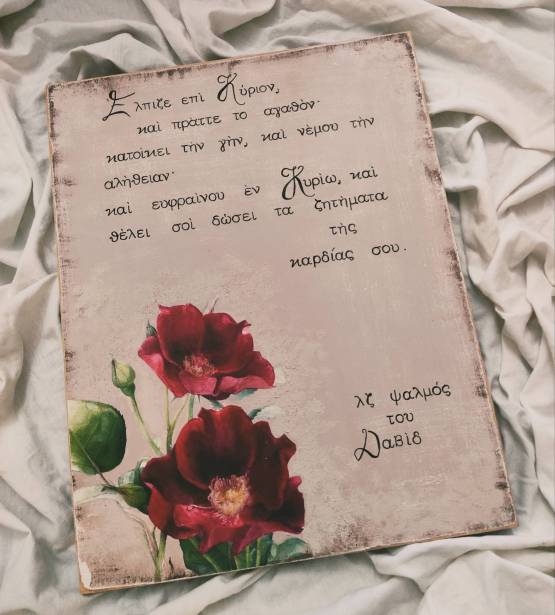 Ελπιζε επὶ Κύριον,
καὶ πρᾶττε το αγαθὸν·
κατοίκει τὴν γῆν, καὶ νέμου τὴν
αλήθειαν·
καὶ ευφραίνου ἐν Κυρίω, καὶ
θέλει σοὶ δώσει τα ζητήματα
τῆς
καρδίας σου.
λζ ψαλμός
του
Δαβὶδ